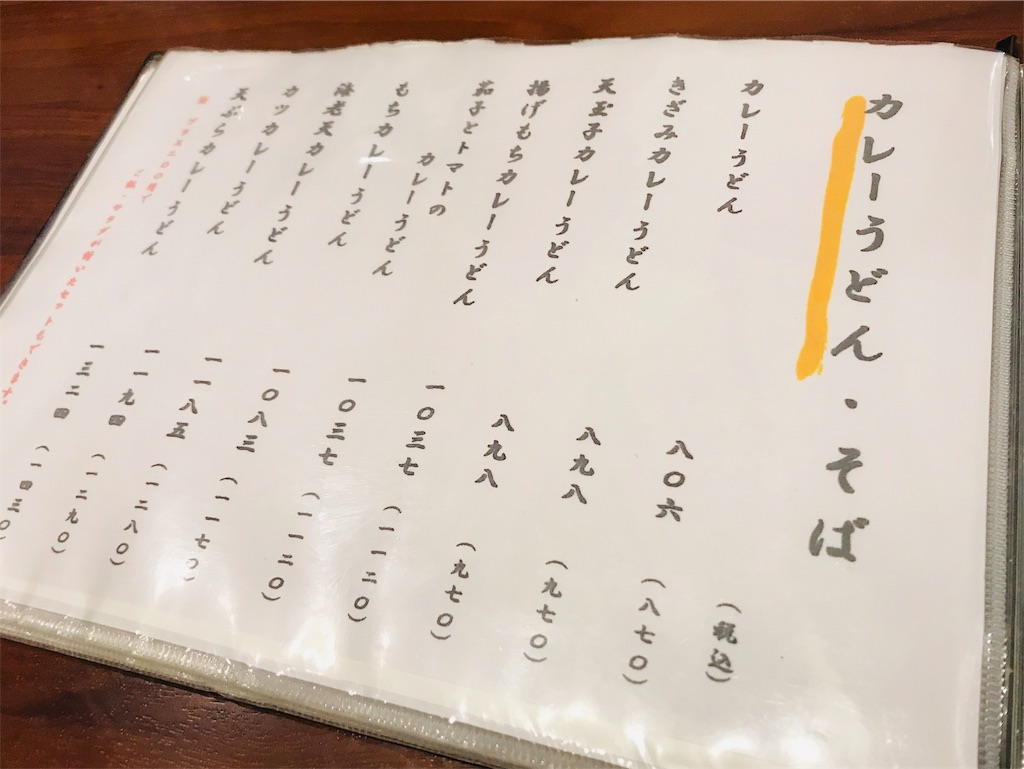 カレーうどん・そば
(税込)
カレーうどん 八〇六 (八七〇)
きざみカレーうどん 八九八 (九七〇)
天玉子カレーうどん 八九八 (九七〇)
揚げもちカレーうどん 一〇三七 (一一二〇)
茄子とトマトの
カレーうどん 一〇三七 (一一二〇)
もちカレーうどん 一〇八三 (一一七〇)
海老天カレーうどん 一一八五 (一二八〇)
カツカレーうどん 一一九四 (一二九〇)
天ぷらカレーうどん 一三二四 (一四三〇)
プラス二〇〇円で
ご飯・サラダが付いたセットもできます。